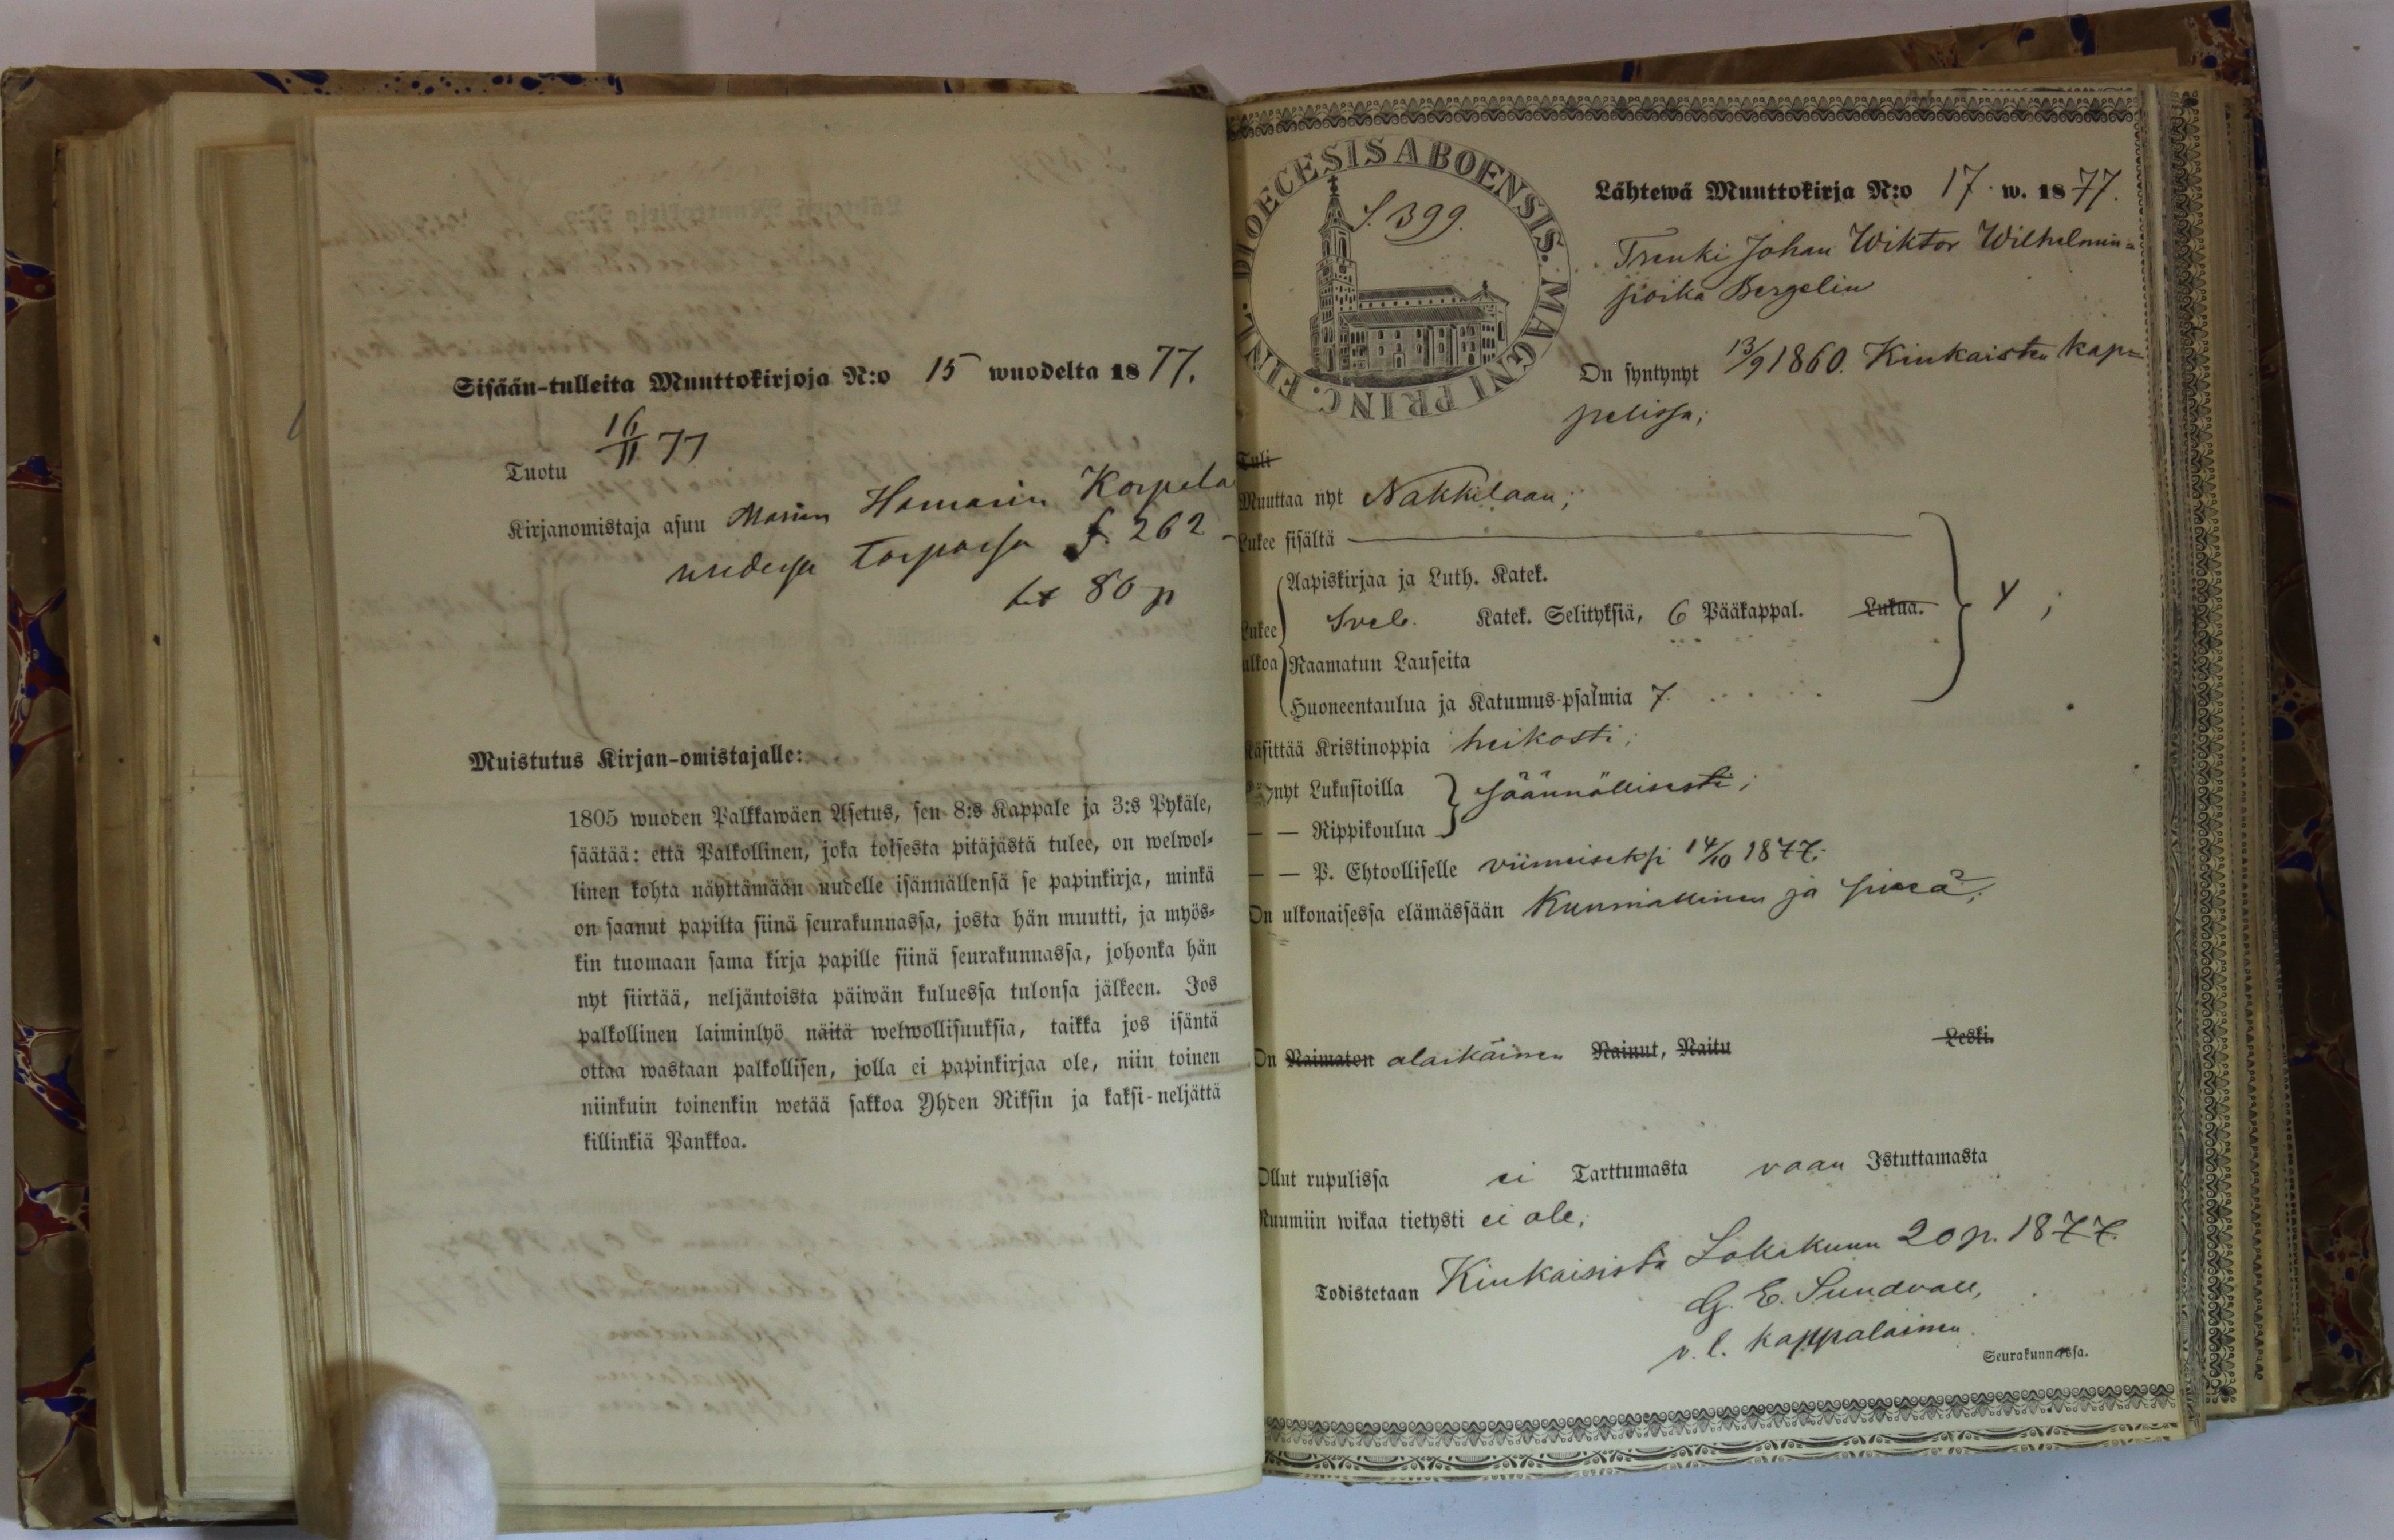 Sisään-tulleita Muuttokirjoja N:o 15 wuodelta 1877.
Tuotu 16/11 77
Kirjanomistaja asuu Korpela
torpassa f. 262
80 p
Muistutus Kirjan-omistajalle:
1805 wuoden Palkkawäen Asetus, sen 8:s Kappale ja 3:s Pykäle,
säätää: että Palkollinen, joka toisesta pitäjästä tulee, on welwol-
linen kohta näyttämään uudelle isännällensä se papinkirja, minkä
on saanut papilta siinä seurakunnassa, josta hän muutti, ja myös-
kin tuomaan sama kirja papille siinä seurakunnassa, johonka hän
nyt siirtää, neljäntoista päiwän kuluessa tulonsa jälkeen. Jos
palkollinen laiminlyö näitä welwollisuuksia, taikka jos isäntä
ottaa wastaan palkollisen, jolla ei papinkirjaa ole, niin toinen
niinkuin toinenkin wetää sakkoa Yhden Riksin ja kaksi-neljättä
killinkiä Pankkoa.
DIOECESIS ABOENSIS. MAGNI PRINC. FINL.
S. 399.
Lähtewä Muuttokirja N:o 17. w. 1877.
Trenki Johan Wiktor Wilhelmin-
poika Bergelin
On syntynyt 13/9 1860. Kiukaisten kap-
pelissa;
Tuli
Muuttaa nyt Nakkilaan;
Lukee sisältä
Aapiskirjaa ja Luth. Katek.
Lukee Sveb. Katek. Selityksiä, 6 Pääkappal. Lukua.
ulkoa Raamatun Lauseita
Huoneentaulua ja Katumus-psalmia 7.
Käsittää Kristinoppia heikosti;
Käynyt Lukusioilla säännöllisesti;
— — Rippikoulua
— — P. Ehtoolliselle viimeiseksi 14/10 1877;
On ulkonaisessa elämässään Kunniallinen ja siivo;
On Naimaton alaikäinen Nainut, Naitu Leski.
Ollut rupulissa ei Tarttumasta vaan Istuttamasta
Ruumiin wikaa tietysti ei ole;
Todistetaan Kiukaisista Lokakuun 20 p. 1877.
G. E. Sundvall,
v. t. kappalainen
Seurakunnassa.